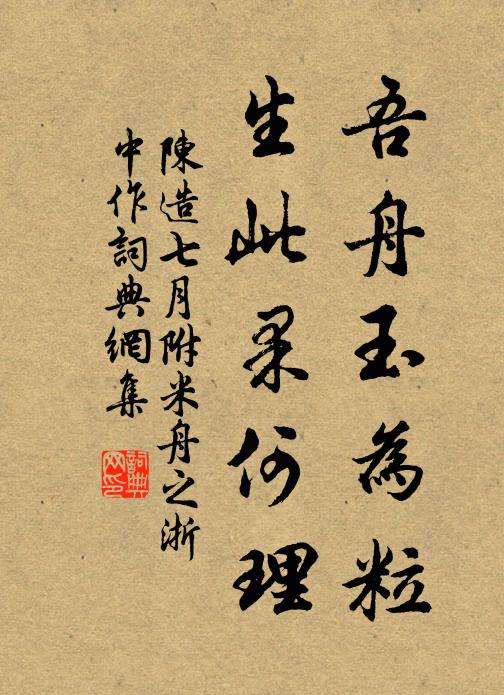 吾舟玉為粒
生此果何理
陳造七月附米舟之浙
中作詞典網集
詞典
网印